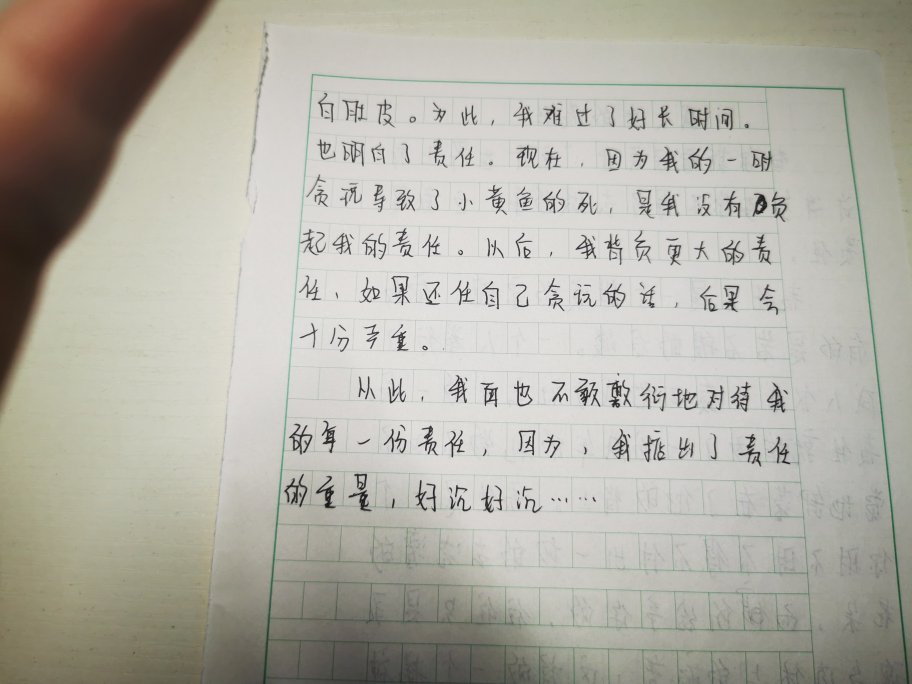 白肚皮。为此，我难过了好长时间。
也明白了责任。现在，因为我的一时
贪玩导致了小黄鱼的死，是我没有负
起我的责任。以后，我背负更大的责
任、如果还任自己贪玩的话，后果会
十分严重。
从此，我再也不敢敷衍地对待我
的每一份责任，因为，我掂出了责任
的重量，好沉好沉……